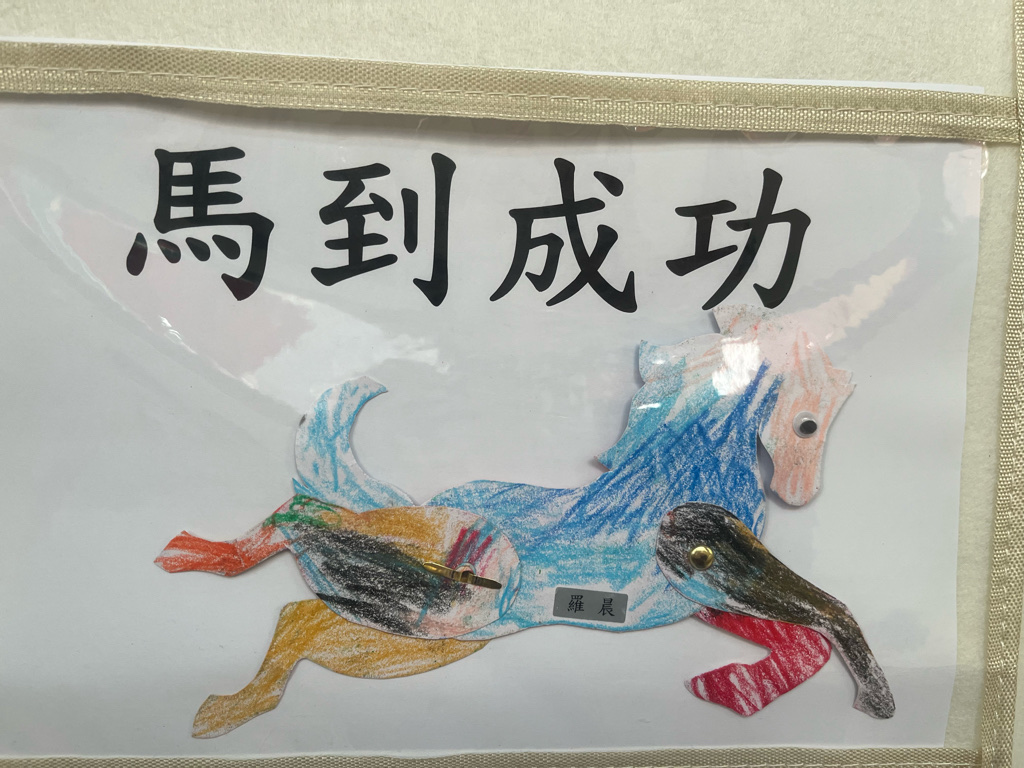 馬到成功
羅晨